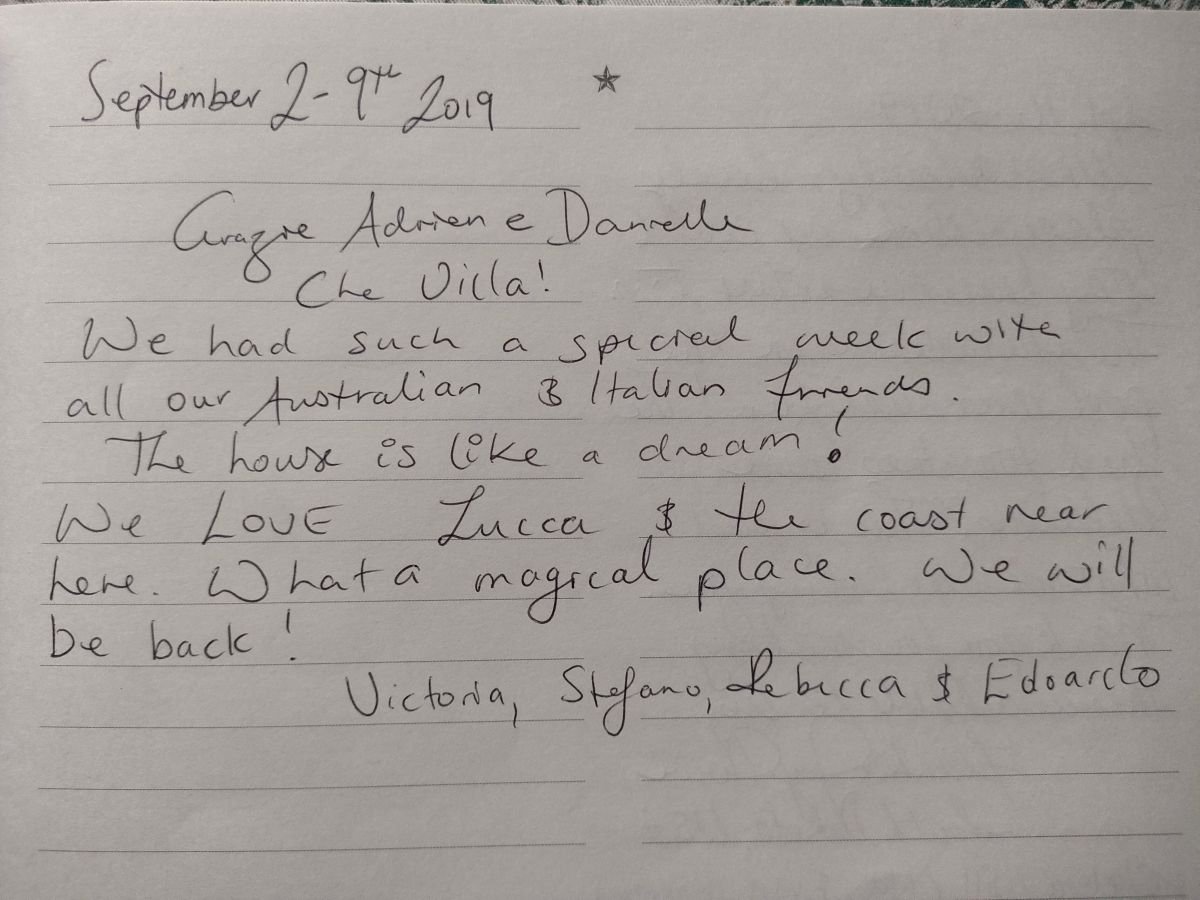 September 2-9th 2019
Grazie Adrien e Danielle
Che Villa!
We had such a special week with
all our Australian & Italian friends.
The house is like a dream!
We LOVE Lucca & the coast near
here. What a magical place. We will
be back!
Victoria, Stefano, Rebecca & Edoardo